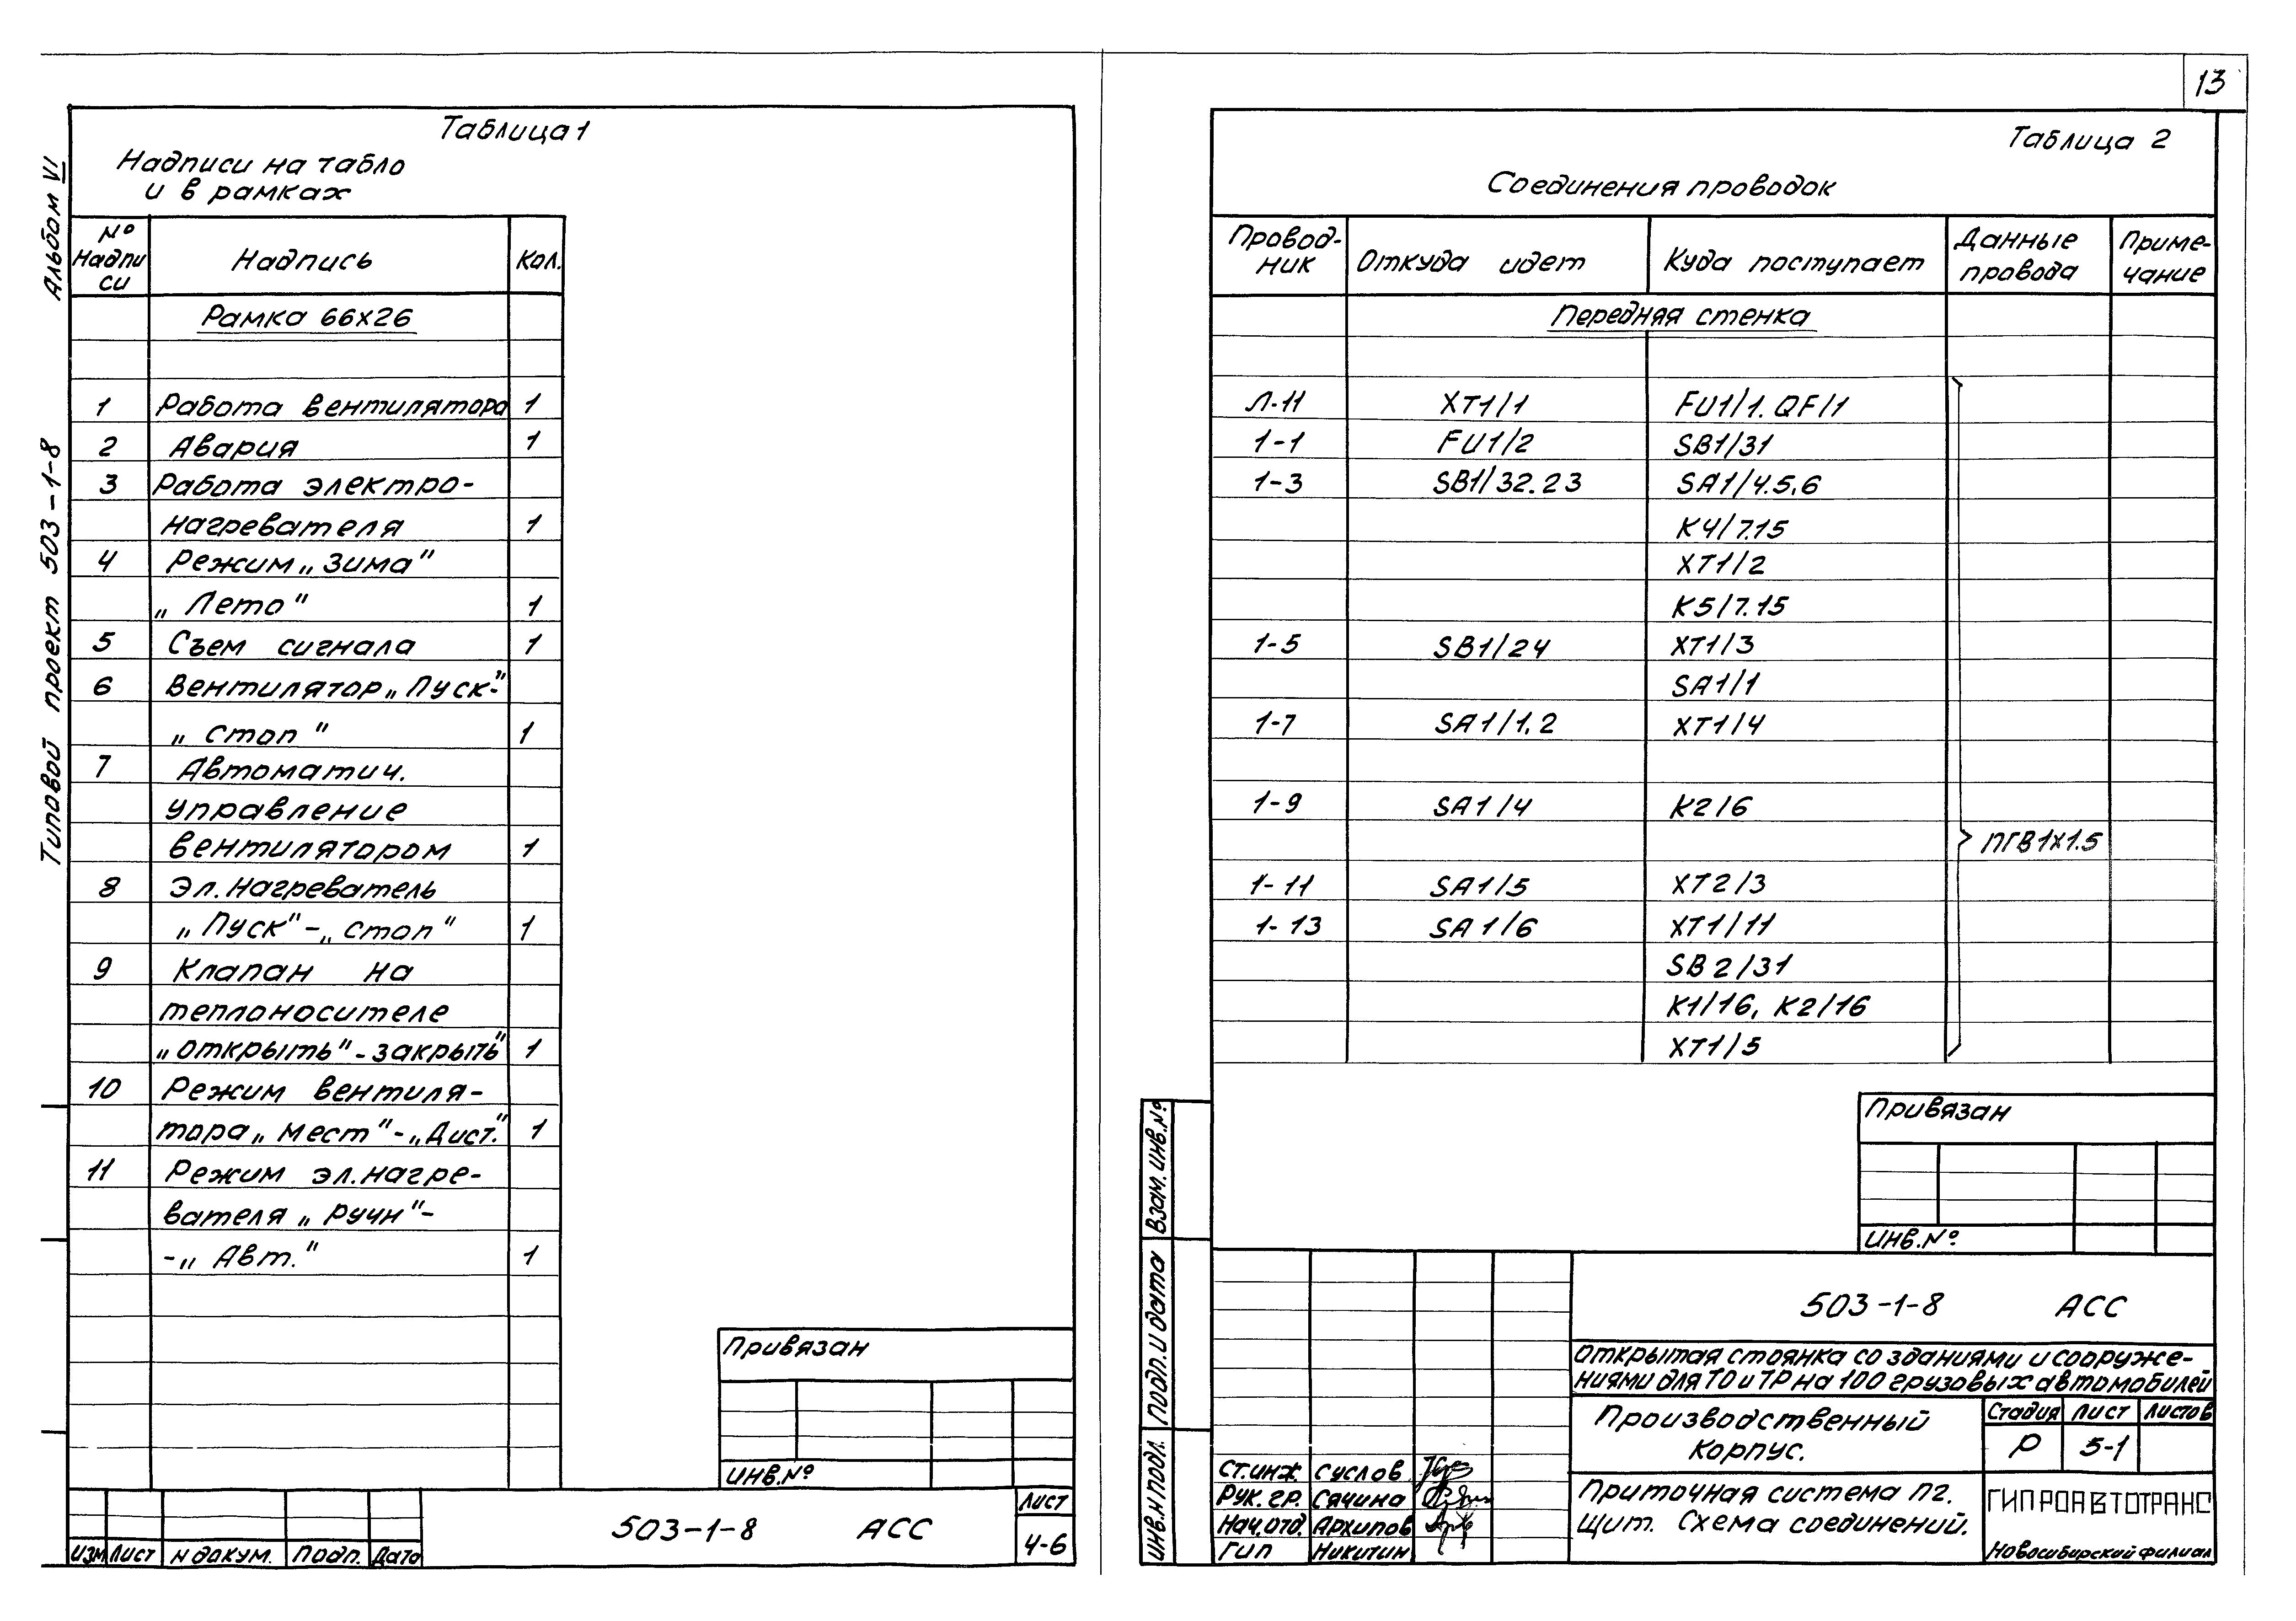 13
Альбом VI
Типовой проект 503-1-8
Таблица 1
Надписи на табло
и в рамках
№ Надпи си | Надпись | Кол.
Рамка 66х26
1 Работа вентилятора 1
2 Авария 1
3 Работа электро-
нагревателя 1
4 Режим „Зима"
„Лето" 1
5 Съем сигнала 1
6 Вентилятор „Пуск-"
„Стоп" 1
7 Автоматич.
управление
вентилятором 1
8 Эл. нагреватель
„Пуск"-„Стоп" 1
9 Клапан на
теплоносителе
„Открыть"-закрыть" 1
10 Режим вентиля-
тора „Мест"-„Дист." 1
11 Режим эл. нагре-
вателя „Ручн"-
-„Авт." 1
Привязан
Инв.№
Изм Лист № докум. Подп. Дата
503-1-8 АСС
Лист
4-6
Таблица 2
Соединения проводок
Провод- ник | Откуда идет | Куда поступает | Данные провода | Приме- чание
Передняя стенка
Л-11 ХТ1/1 FU1/1. QF/1
1-1 FU1/2 SB1/31
1-3 SB1/32.23 SA1/4.5.6
К4/7.15
ХТ1/2
К5/7.15
1-5 SB1/24 ХТ1/3
SA1/1
1-7 SA1/1.2 ХТ1/4
1-9 SA1/4 К2/6
ПГВ1х1.5
1-11 SA1/5 ХТ2/3
1-13 SA1/6 ХТ1/11
SB2/31
К1/16, К2/16
ХТ1/5
Привязан
Инв.№
Взам. инв.№
Подп. и дата
Инв.№ подл.
503-1-8 АСС
Открытая стоянка со зданиями и сооруже-
ниями для ТО и ТР на 100 грузовых автомобилей
Производственный
корпус.
Стадия Лист Листов
Р 5-1
Ст.инж. Суслов
Рук. гр. Сячина
Нач.отд. Архипов
ГИП Никитин
Приточная система П2.
Щит. Схема соединений.
ГИПРОАВТОТРАНС
Новосибирский филиал